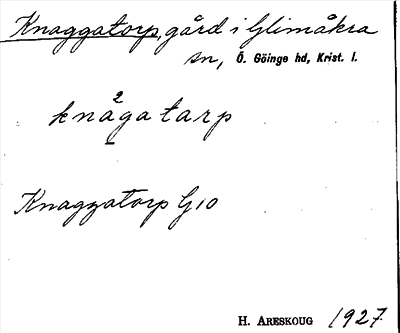 Knaggatorp, gård i Glimåkra
sn, Ö. Göinge hd, Krist. l.
2
knågatarp
Knaggatorp G10
H. ARESKOUG 1927.